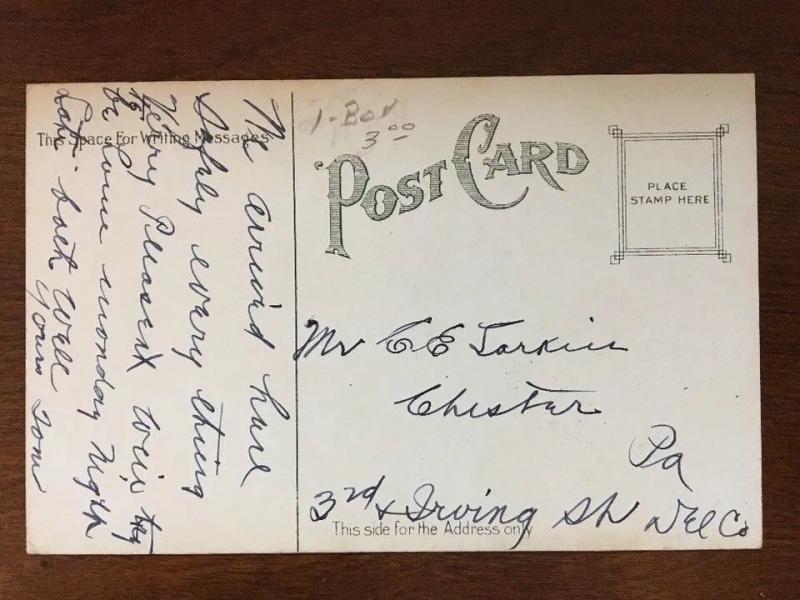 We arrived hare
Safely every thing
Very Pleasent will try
to be home monday Night
Late. both well
yours Tom
This Space For Writing Messages
1-Box
3.00
POST CARD
PLACE
STAMP HERE
Mr C E Larkin
Chester
Pa
3rd & Irving Sts Del Co
This side for the Address only